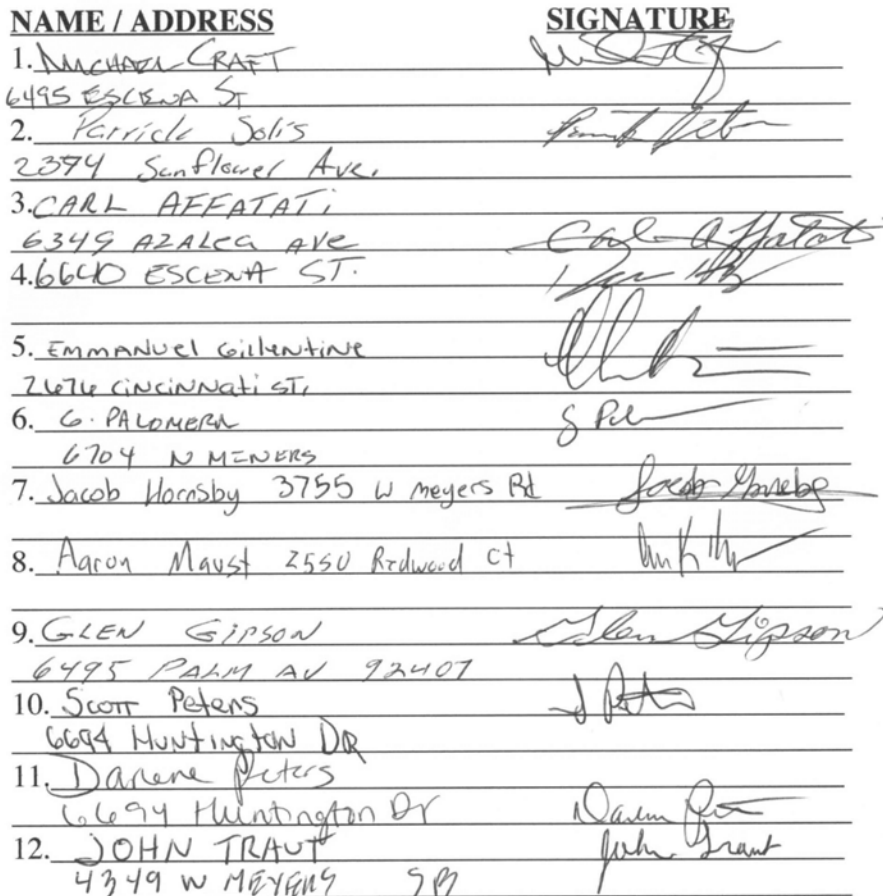 NAME / ADDRESS SIGNATURE
1. MICHAEL CRAFT
6495 ESCENA ST
2. Patrick Solis
2394 Sunflower Ave.
3. CARL AFFATATi
6349 AZALEA AVE Carl Affatati
4. 6640 ESCENA ST.
5. EMMANUEL Gillentine
2676 CINCINNATI ST.
6. G. PALOMERA G Pal
6704 N MINERS
7. Jacob Hornsby 3755 W meyers Rd Jacob Hornsby
8. Aaron Maust 2550 Redwood Ct
9. GLEN GIPSON Glen Gipson
6495 PALM AV 92407
10. Scott Peters
6694 HUNTINGTON DR
11. Darlene Peters
6694 Huntington Dr
12. JOHN TRAUT John Traut
4349 W MEYERS SB